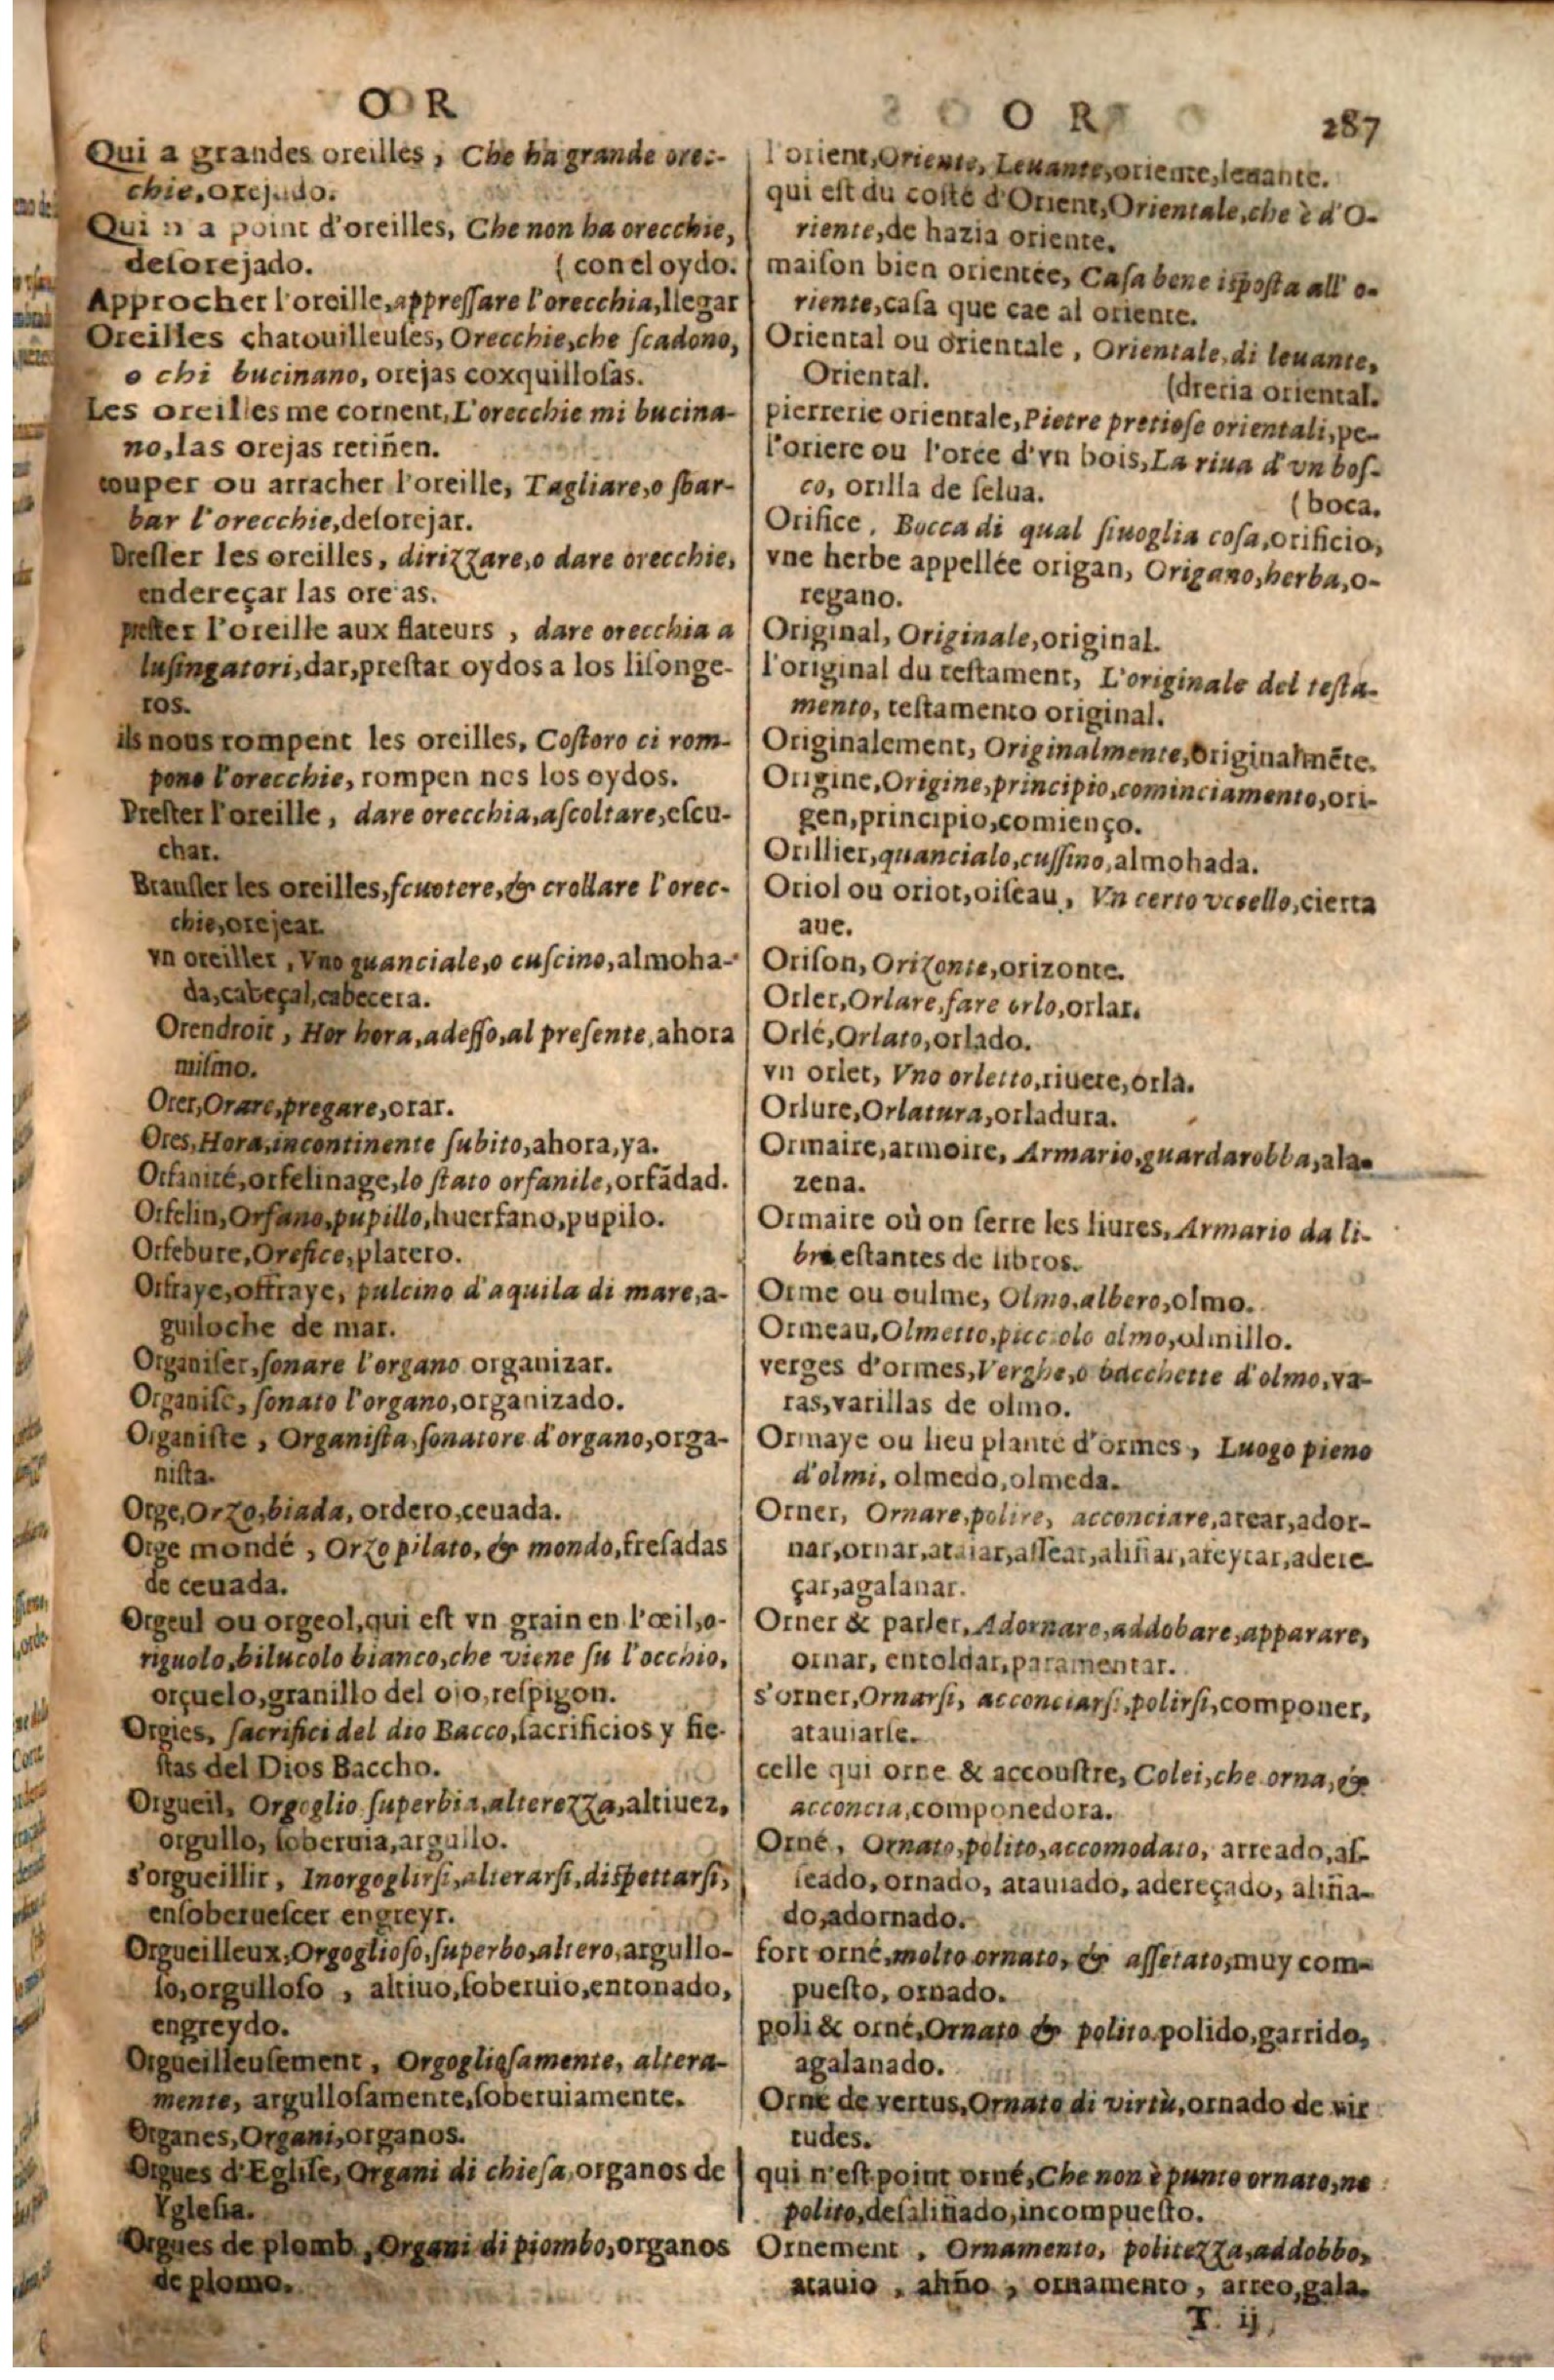 O R
Qui a grandes oreilles, Che ha grande orec-
chie, orejudo.
Qui n'a point d'oreilles, Che non ha orecchie,
desorejado. (con el oydo.
Approcher l'oreille, appressare l'orecchia, llegar
Oreilles chatouilleuses, Orecchie, che scadono,
o chi bucinano, orejas coxquillosas.
Les oreilles me cornent, L'orecchie mi bucina-
no, las orejas retiñen.
couper ou arracher l'oreille, Tagliare, o sbar-
bar l'orecchie, desorejar.
Dresser les oreilles, dirizzare, o dare orecchie,
endereçar las ore as.
prester l'oreille aux flateurs, dare orecchia a
lusingatori, dar, prestar oydos a los lisonge-
ros.
ils nous rompent les oreilles, Costoro ci rom-
pono l'orecchie, rompen nos los oydos.
Prester l'oreille, dare orecchia, ascoltare, escu-
char.
Bransler les oreilles, scuotere, & crollare l'orec-
chie, orejear.
vn oreiller, Vno guanciale, o cuscino, almoha-
da, cabeçal, cabecera.
Orendroit, Hor hora, adesso, al presente, ahora
mismo.
Orer, Orare, pregare, orar.
Ores, Hora, incontinente subito, ahora, ya.
Orfanité, orfelinage, lo stato orfanile, orfãdad.
Orfelin, Orfano, pupillo, huerfano, pupilo.
Orfebure, Orefice, platero.
Orfraye, offraye, pulcino d'aquila di mare, a-
guiloche de mar.
Organiser, sonare l'organo organizar.
Organisé, sonato l'organo, organizado.
Organiste, Organista, sonatore d'organo, orga-
nista.
Orge, Orzo, biada, ordero, ceuada.
Orge mondé, Orzo pilato, & mondo, fresadas
de ceuada.
Orgeul ou orgeol, qui est vn grain en l'œil, o-
riguolo, bilucolo bianco, che viene su l'occhio,
orçuelo, granillo del ojo, respigon.
Orgies, sacrifici del dio Bacco, sacrificios y fie-
stas del Dios Baccho.
Orgueil, Orgoglio superbia, alterezza, altiuez,
orgullo, soberuia, argullo.
s'orgueillir, Inorgoglirsi, alterarsi, dispettarsi,
ensoberuescer engreyr.
Orgueilleux, Orgoglioso, superbo, altero, argullo-
so, orgulloso, altiuo, soberuio, entonado,
engreydo.
Orgueilleusement, Orgogliosamente, altera-
mente, argullosamente, soberuiamente.
Organes, Organi, organos.
Orgues d'Eglise, Organi di chiesa, organos de
Yglesia.
Orgues de plomb, Organi di piombo, organos
de plomo.
O R 287
l'orient, Oriente, Leuante, oriente, leuante.
qui est du costé d'Orient, Orientale, che è d'O-
riente, de hazia oriente.
maison bien orientée, Casa bene isposta all' o-
riente, casa que cae al oriente.
Oriental ou orientale, Orientale, di leuante,
Oriental. (dreria oriental.
pierrerie orientale, Pietre pretiose orientali, pe-
l'oriere ou l'orée d'vn bois, La riua d'vn bos-
co, orilla de selua. (boca.
Orifice, Bocca di qual siuoglia cosa, orificio,
vne herbe appellée origan, Origano, herba, o-
regano.
Original, Originale, original.
l'original du testament, L'originale del testa-
mento, testamento original.
Originalement, Originalmente, originalmẽte.
Origine, Origine, principio, cominciamento, ori-
gen, principio, comienço.
Orillier, quancialo, cussino, almohada.
Oriol ou oriot, oiseau, Vn certo vcsello, cierta
aue.
Orison, Orizonte, orizonte.
Orler, Orlare, fare orlo, orlar.
Orlé, Orlato, orlado.
vn orlet, Vno orletto, riuete, orla.
Orlure, Orlatura, orladura.
Ormaire, armoire, Armario, guardarobba, ala-
zena.
Ormaire où on serre les liures, Armario da li-
bri estantes de libros.
Orme ou oulme, Olmo, albero, olmo.
Ormeau, Olmetto, piccolo olmo, olmillo.
verges d'ormes, Verghe, o bacchette d'olmo, va-
ras, varillas de olmo.
Ormaye ou lieu planté d'ormes, Luogo pieno
d'olmi, olmedo, olmeda.
Orner, Ornare, polire, acconciare, arear, ador-
nar, ornar, atauiar, assear, aliñar, afeytar, adere-
çar, agalanar.
Orner & parler, Adornare, addobare, apparare,
ornar, entoldar, paramentar.
s'orner, Ornarsi, acconciarsi, polirsi, componer,
atauiarse.
celle qui orne & accoustre, Colei, che orna, &
acconcia, componedora.
Orné, Ornato, polito, accomodato, arreado, as-
seado, ornado, atauiado, adereçado, aliña-
do, adornado.
fort orné, molto ornato, & assetato, muy com-
puesto, ornado.
poli & orné, Ornato & polito polido, garrido,
agalanado.
Orné de vertus, Ornato di virtù, ornado de vir
tudes.
qui n'est point orné, Che non è punto ornato, ne
polito, desaliñado, incompuesto.
Ornement, Ornamento, politezza, addobbo,
atauio, aliño, ornamento, arreo, gala.
T ij